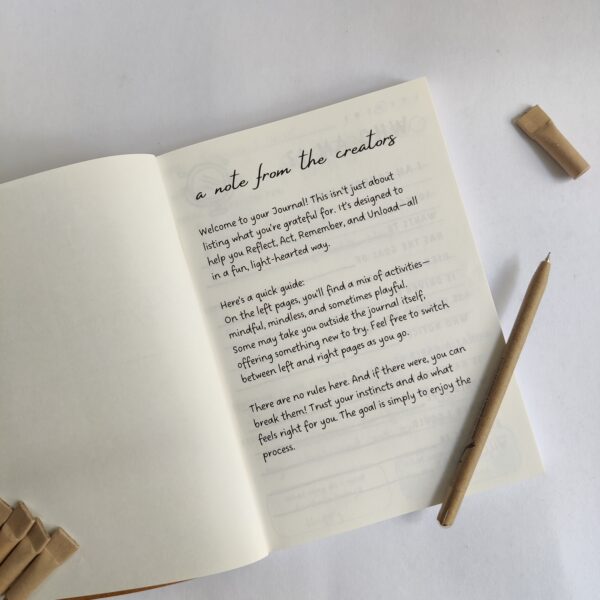 a note from the creators
Welcome to your Journal! This isn't just about
listing what you're grateful for. It's designed to
help you Reflect, Act, Remember, and Unload—all
in a fun, light-hearted way.
Here's a quick guide:
On the left pages, you'll find a mix of activities—
mindful, mindless, and sometimes playful.
Some may take you outside the journal itself,
offering something new to try. Feel free to switch
between left and right pages as you go.
There are no rules here. And if there were, you can
break them! Trust your instincts and do what
feels right for you. The goal is simply to enjoy the
process.